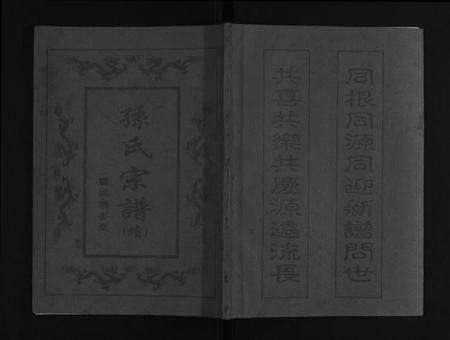 同根同源同迎新譜問世
共喜共樂共慶源遠流長
孫氏宗譜
(續)